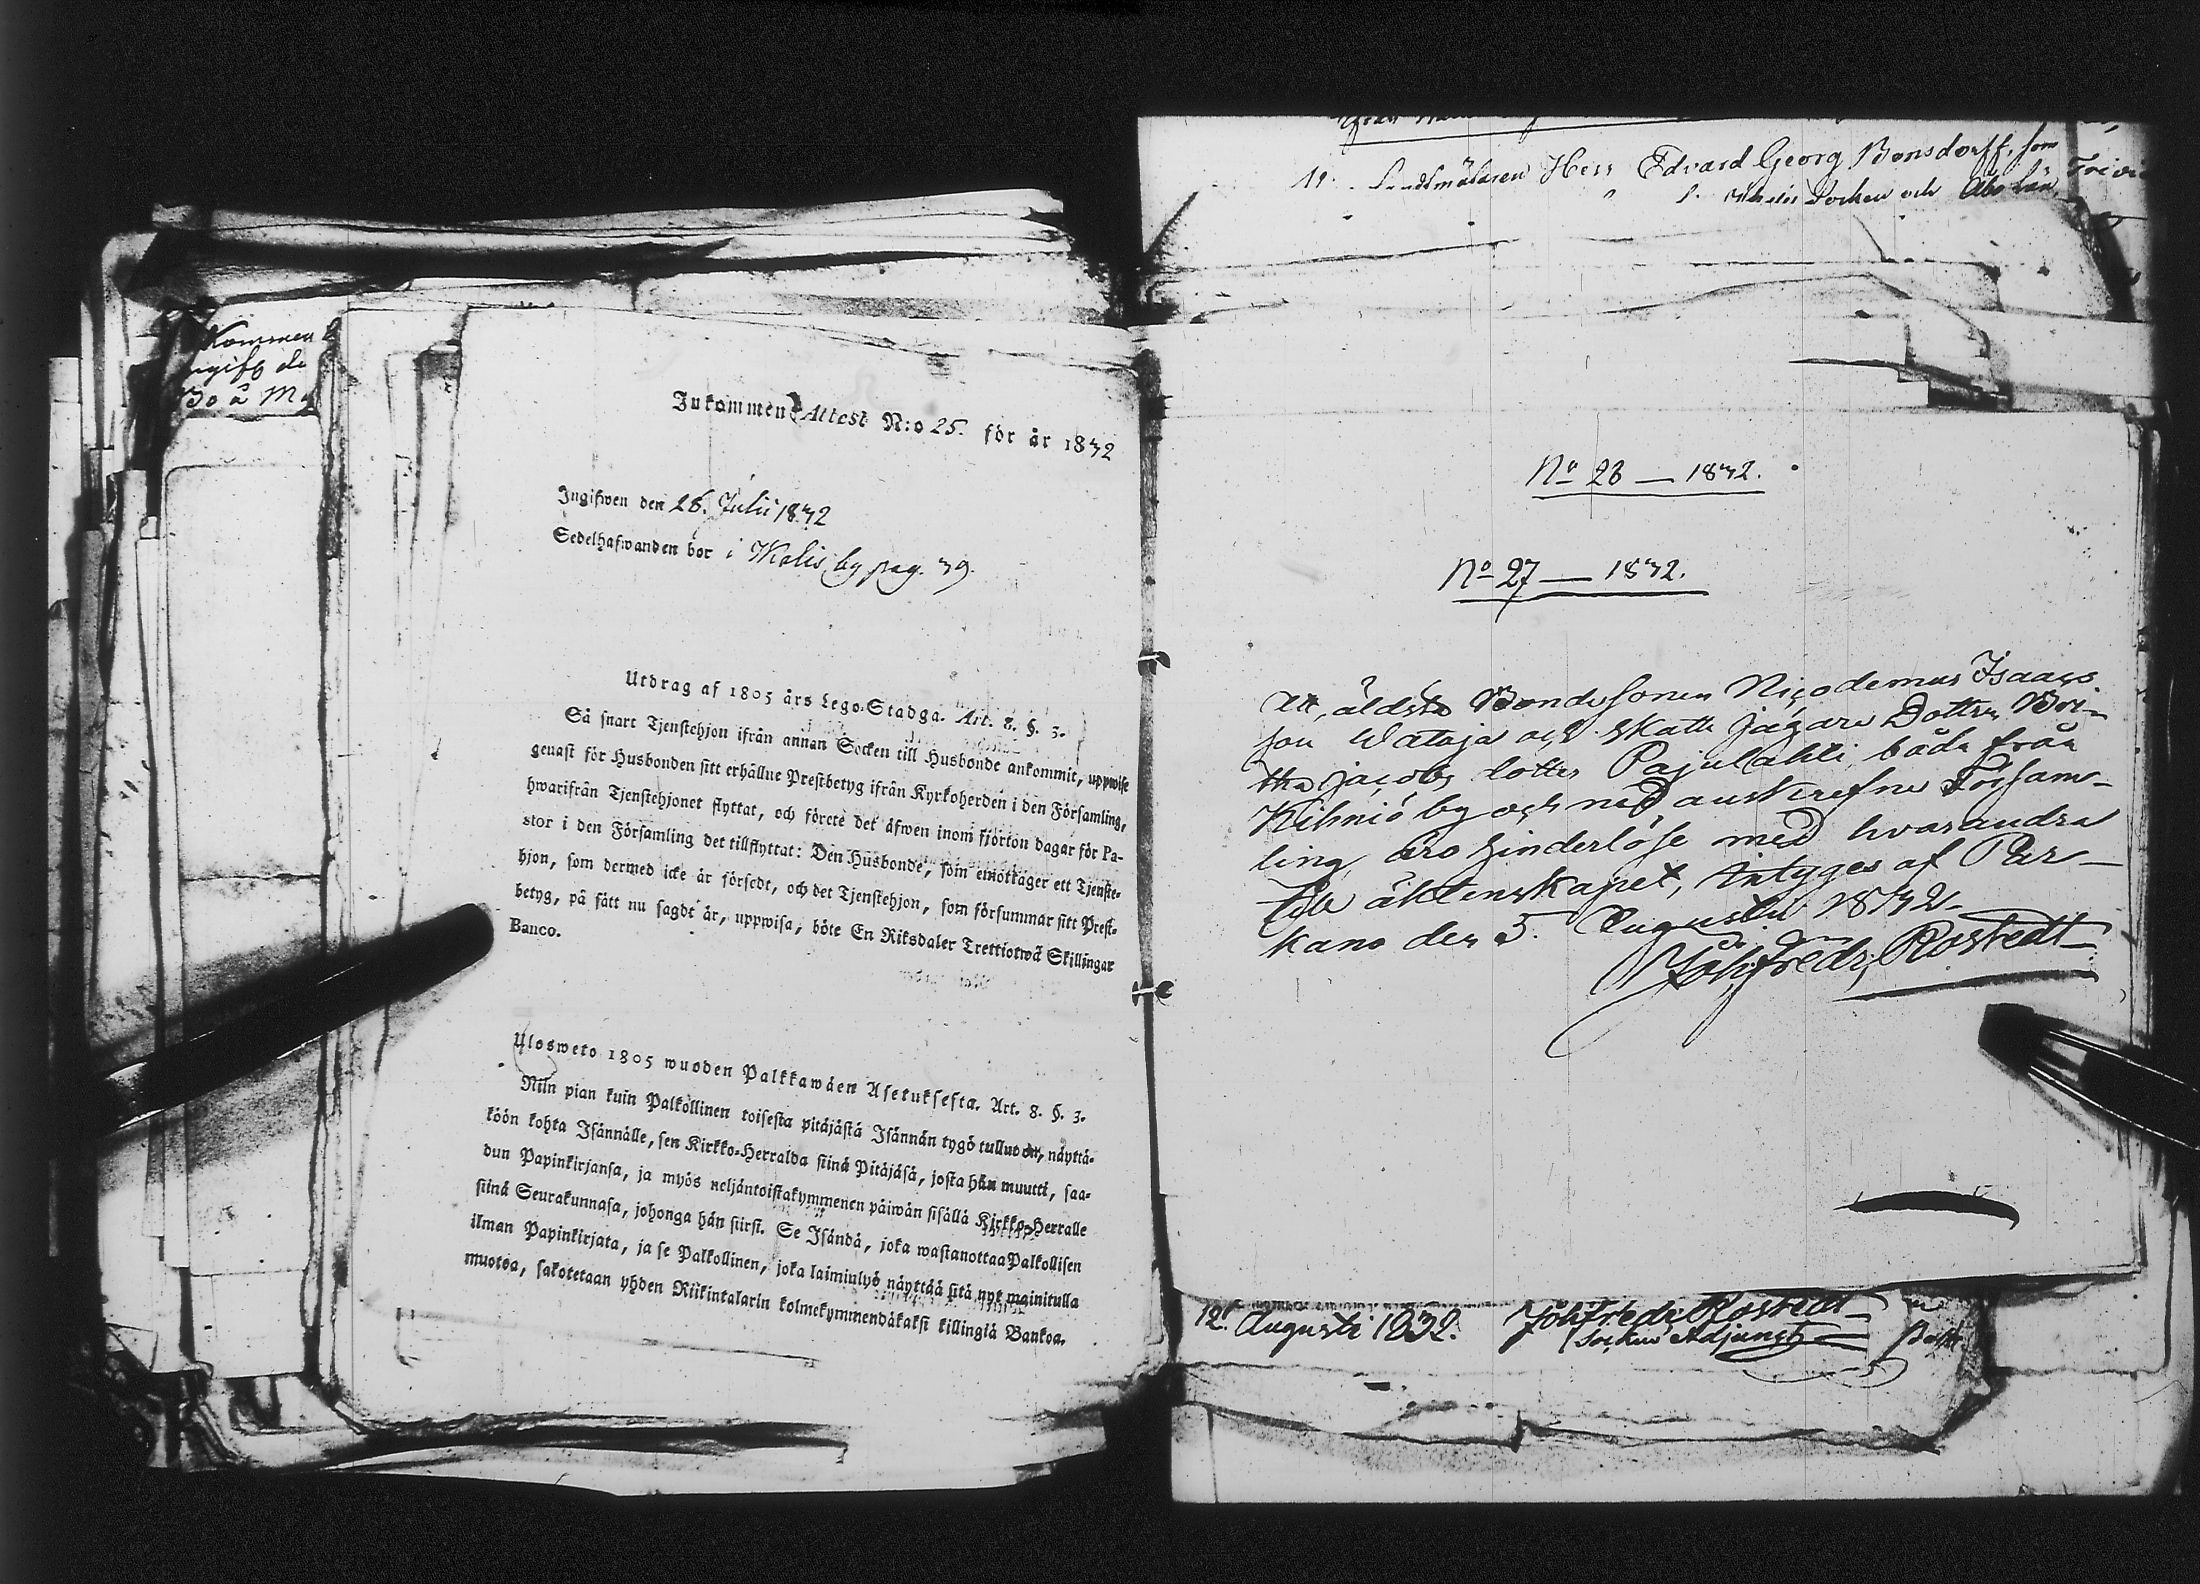 Kommen
ingifq de
Bo å My
Inkommen Attest N:o 25. för år 1832
Ingifwen den 26. Julii 1832
Sedelhafwanden bor i Wälis by pag. 39.
Utdrag af 1805 års Lego-Stadga. Art. 8. §. 3.
Så snart Tjenstehjon ifrån annan Socken till Husbonde ankommit, uppwise
genast för Husbonden sitt erhållne Prestbetyg ifrån Kyrkoherden i den Församling,
hwarifrån Tjenstehjonet flyttat, och förete det äfwen inom fjorton dagar för Pa-
stor i den Församling det tillflyttat: Den Husbonde, som emottager ett Tjenste-
hjon, som dermed icke är försedt, och det Tjenstehjon, som försummar sitt Prest-
betyg, på sätt nu sagdt är, uppwisa, böte En Riksdaler Trettiotwå Skillingar
Banco.
Ulosweto 1805 wuoden Palkkawäen Asetuksesta. Art. 8. §. 3.
Niin pian kuin Palkollinen toisesta pitäjästä Isännän tygö tullut on, näyttä-
köön kohta Isännälle, sen Kirkko-Herralda siinä Pitäjäsä, josta hän muutti, saa-
dun Papinkirjansa, ja myös neljäntoistakymmenen päiwän sisällä Kirkko-Herralle
siinä Seurakunnasa, johonga hän siirsi. Se Isändä, joka wastanottaa Palkollisen
ilman Papinkirjata, ja se Palkollinen, joka laiminlyö näyttää sitä nyt mainitulla
muotoa, sakotetaan yhden Riikintalarin kolmekymmendäkaksi killingiä Bankoa.
11. Landtmätaren Herr Edvard Georg Bonsdorff, som
Socken och Åbo Län
No 26 — 1832.
No 27 — 1832.
Att, äldsta Bondesonen Niçodemus Isaacs
son Wataja och Skatte jägare Dottren Bri-
tha Jacobs dotter Pajulahti, båda från
Kihniö by och nedanskrefne Försam-
ling, äro hinderlöse med hvarandra
till äktenskapet, intyges af Par-
kano den 5. Augusti 1832.
Joh. Fredr. Rostedt
12. Augusti 1832. Joh Fredr Rostedt
Socken Adjunct